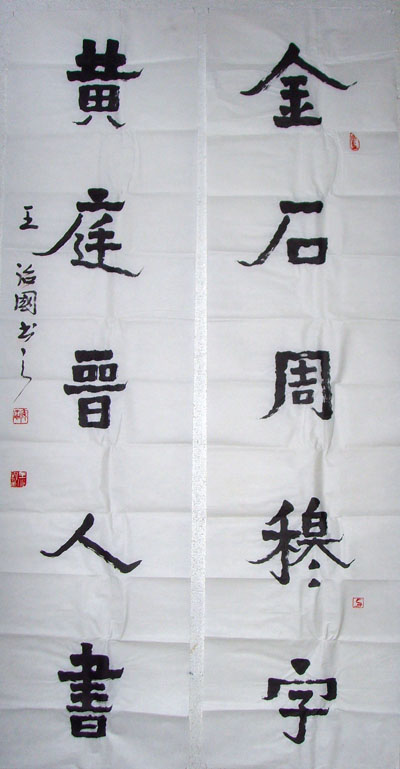 金石周穆字
黄庭晉人書
王治國书之